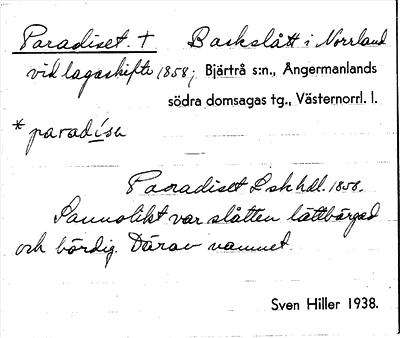 Paradiset. † Backslått i Norrland
vid lagaskifte 1858; Bjärtrå s:n., Ångermanlands
södra domsagas tg., Västernorrl. l.
* paradísu
Paradiset Lskhdl. 1858.
Sannolikt var slåtten lättbärgad
och bördig. Därav namnet.
Sven Hiller 1938.